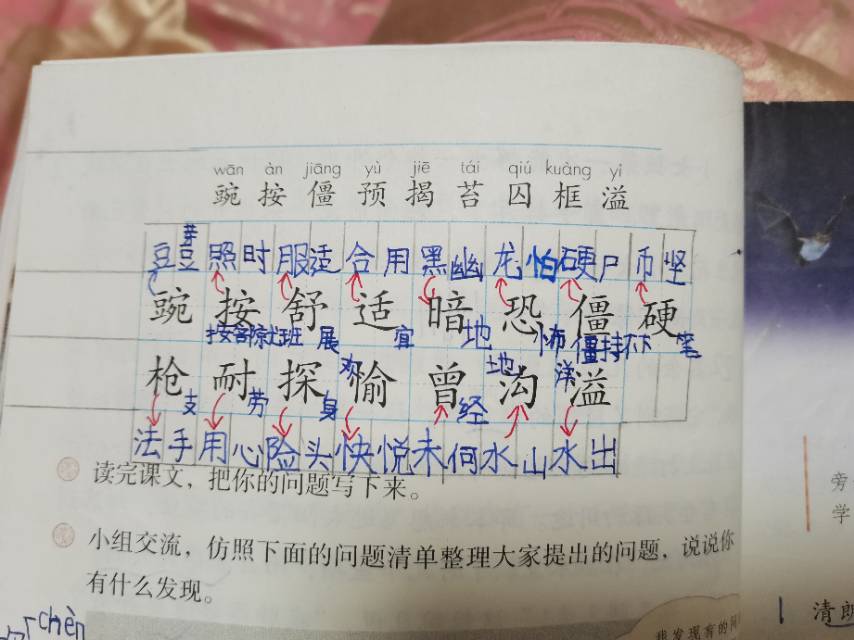 wān àn jiāng yù jiē tái qiú kuàng yì
豌 按 僵 预 揭 苔 囚 框 溢
芽
豆豆照时服适合用黑幽龙怕硬尸币坚
豌按舒适暗恐僵硬
按部就班展宜地怖僵持不下笔
枪耐探愉曾沟溢
支劳身欢经地洋
法手用心险头快悦未何水山水出
读完课文,把你的问题写下来。
小组交流,仿照下面的问题清单整理大家提出的问题,说说你
有什么发现。
chèn
我发现有的问
旁
学
清朗